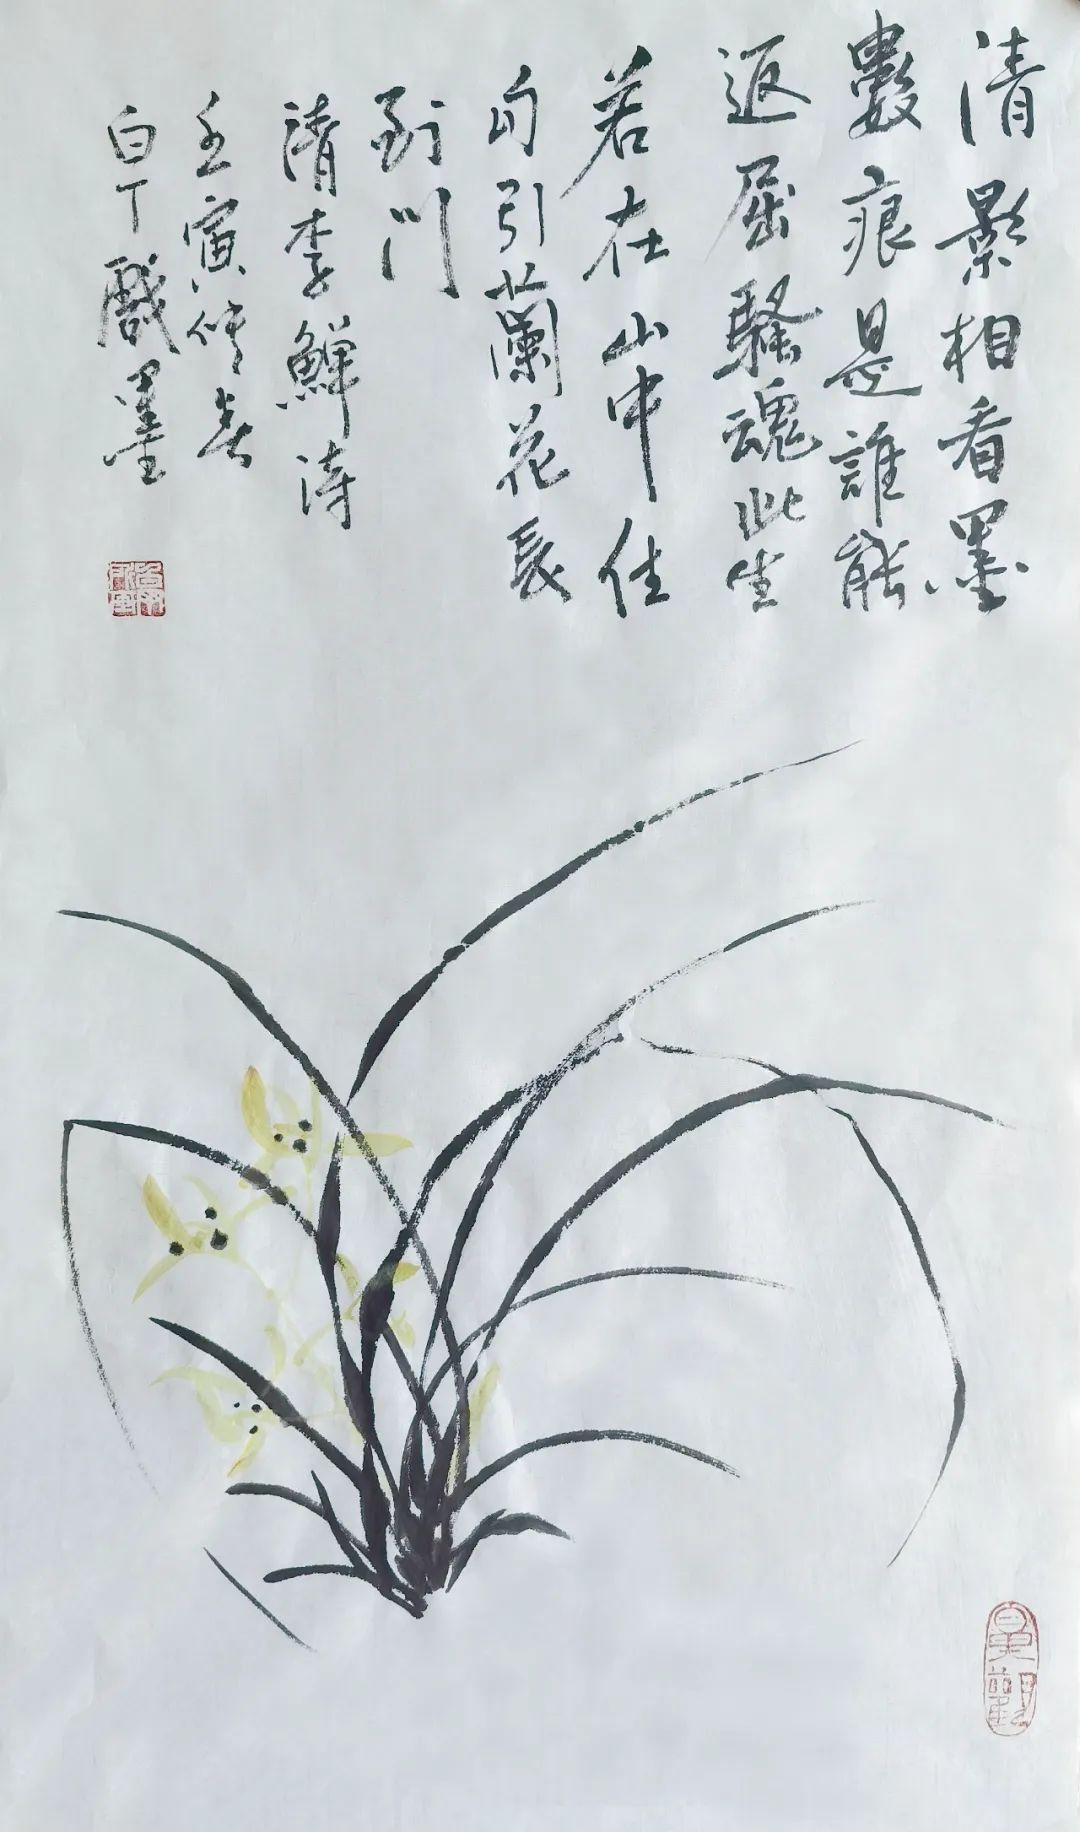 清影相看墨
數痕是誰能
返屈騷魂此生
若在山中住
自引蘭花長
到门
清李鱓诗
壬寅仲春
白丁戲墨